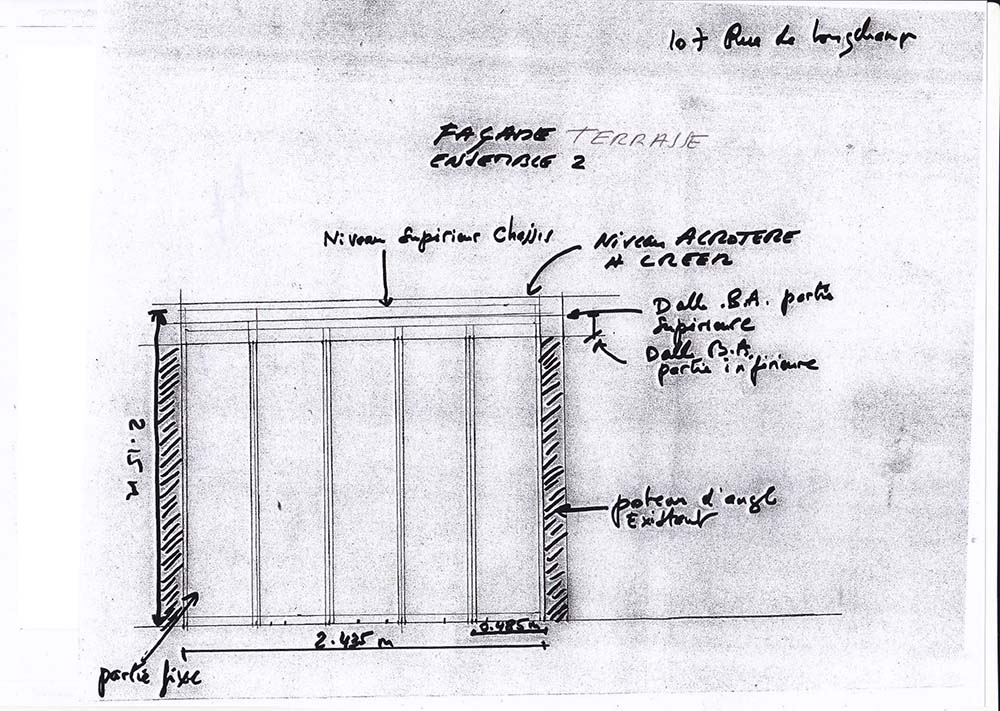 107 Rue de Longchamp
FAÇADE TERRASSE
ENSEMBLE 2
Niveau Supérieur Chassis
Niveau ACROTERE
A CREER
Dalle B.A. partie
Supérieure
Dalle B.A.
partie inférieure
2.15 m
poteau d'angle
Existant
0.485 m
2.435 m
partie fixe